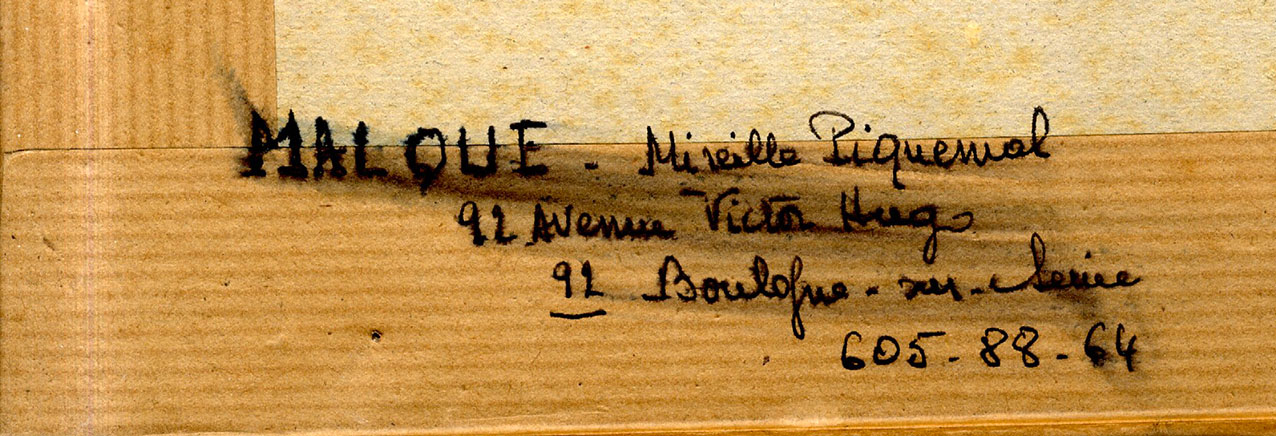 MALQUE - Mireille Piquemal
92 Avenue Victor Hugo
92 Boulogne-sur-Seine
605-88-64